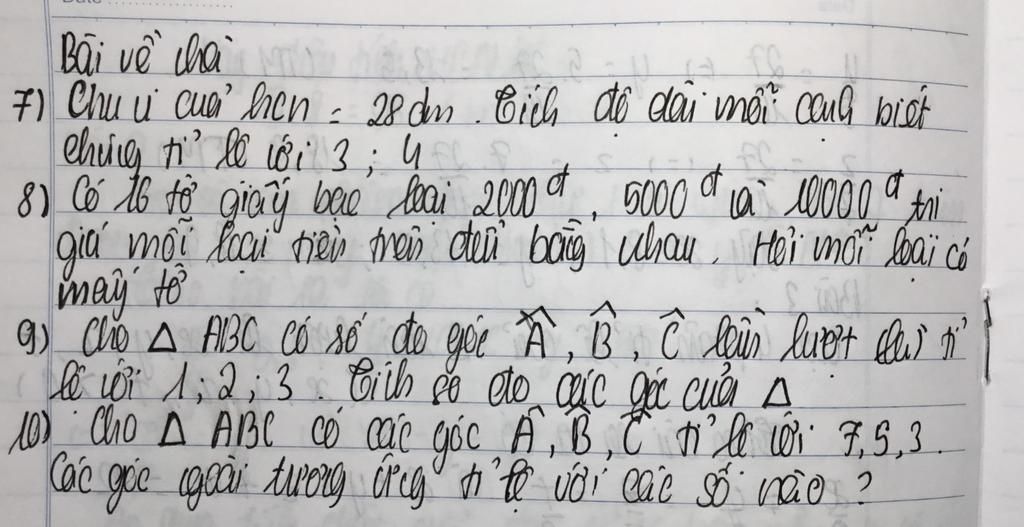 Bài về nhà
7) Chu vi của hcn = 28 dm. Tính độ dài mỗi cạnh biết
chúng tỉ lệ với 3 ; 4
8) Có 16 tờ giấy bạc loại 2000đ, 5000đ và 10000đ trị
giá mỗi loại tiền trên đều bằng nhau. Hỏi mỗi loại có
mấy tờ
9) Cho Δ ABC có số đo góc Â, B̂, Ĉ lần lượt tỉ
lệ với 1 ; 2 ; 3. Tính số đo các góc của Δ
10) Cho Δ ABC có các góc Â, B̂, Ĉ tỉ lệ với 7, 5, 3.
Các góc ngoài tương ứng tỉ lệ với các số nào ?